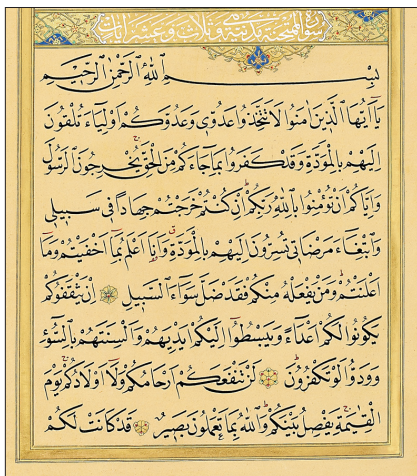 سورة الممتحنة مدنية وهى ثلاث وعشر ايات
بِسْمِ اللهِ الرَّحْمٰنِ الرَّحِيمِ
يَآ أَيُّهَا الَّذِينَ اٰمَنُوا لَا تَتَّخِذُوا عَدُوِّى وَعَدُوَّكُمْ اَوْلِيَاءَ تُلْقُونَ
اِلَيْهِمْ بِالْمَوَدَّةِ وَقَدْ كَفَرُوا بِمَا جَاءَكُمْ مِنَ الْحَقِّ يُخْرِجُونَ الرَّسُولَ
وَاِيَّاكُمْ اَنْ تُؤْمِنُوا بِاللهِ رَبِّكُمْ اِنْ كُنْتُمْ خَرَجْتُمْ جِهَادًا فِى سَبِيلِى
وَابْتِغَاءَ مَرْضَاتِى تُسِرُّونَ اِلَيْهِمْ بِالْمَوَدَّةِ وَاَنَا اَعْلَمُ بِمَا اَخْفَيْتُمْ وَمَا
اَعْلَنْتُمْ وَمَنْ يَفْعَلْهُ مِنْكُمْ فَقَدْ ضَلَّ سَوَاءَ السَّبِيلِ اِنْ يَثْقَفُوكُمْ
يَكُونُوا لَكُمْ اَعْدَاءً وَيَبْسُطُوا اِلَيْكُمْ اَيْدِيَهُمْ وَاَلْسِنَتَهُمْ بِالسُّوءِ
وَوَدُّوا لَوْ تَكْفُرُونَ لَنْ تَنْفَعَكُمْ اَرْحَامُكُمْ وَلَا اَوْلَادُكُمْ يَوْمَ
الْقِيٰمَةِ يَفْصِلُ بَيْنَكُمْ وَاللهُ بِمَا تَعْمَلُونَ بَصِيرٌ قَدْ كَانَتْ لَكُمْ